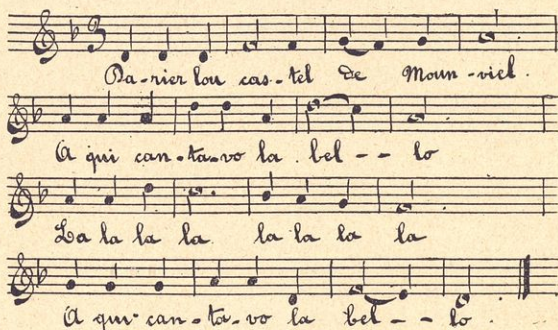 Da-rier lou cas-tel de Moun-viel.
A qui can-ta-vo la bel -- lo
La la la la la la la la
A qui can-ta-vo la bel -- lo.